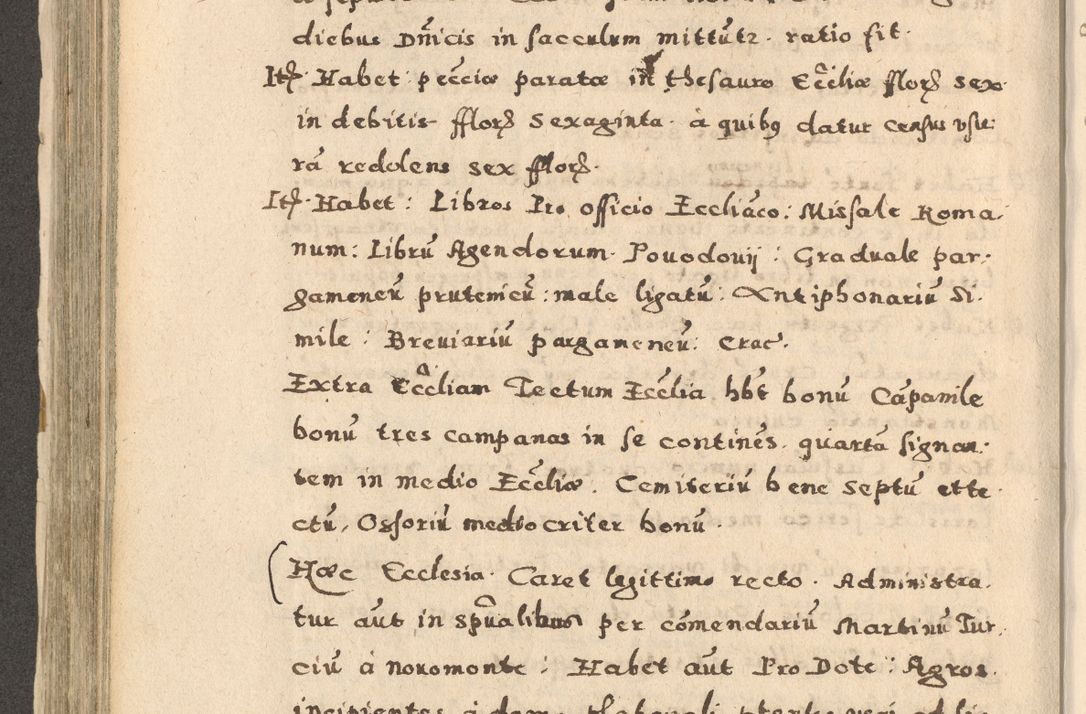 diebus Dn̄icis in sacculum mittūtz. ratio fit.
Itꝫ Habet pecc̄iæ paratæ in thesauro Ecc̄liæ fflorꝫ sex
in debitis fflorꝫ Sexaginta. à quibꝰ datur census vsu:
rā redolens sex fflorꝫ.
Itꝫ. Habet: Libros Pro officio Eccliāco: Missale Roma:
num: Librū Agendorum. Pouodouij: Graduale par:
gameneū prutenicū: male ligatū: Antiphonariū Si:
mile: Breuiariū pargameneū: Crac̄.
Extra Ecc̄liam Tectum Ecc̄lia hb̄t bonū Cāpanile
bonū tres campanas in se continēs. quartā signan:
tem in medio Ecc̄liæ. Cemiteriū bene septū et te
ctū, Ossoriū mediocriter bonū.
Hæc Ecclesia. Caret legittimo recto. Administra
tur aūt in spūalibus per cōmendariū Martinū Tur:
ciū à nouomonte: Habet aūt Pro Dote: Agros
incipientes à domo